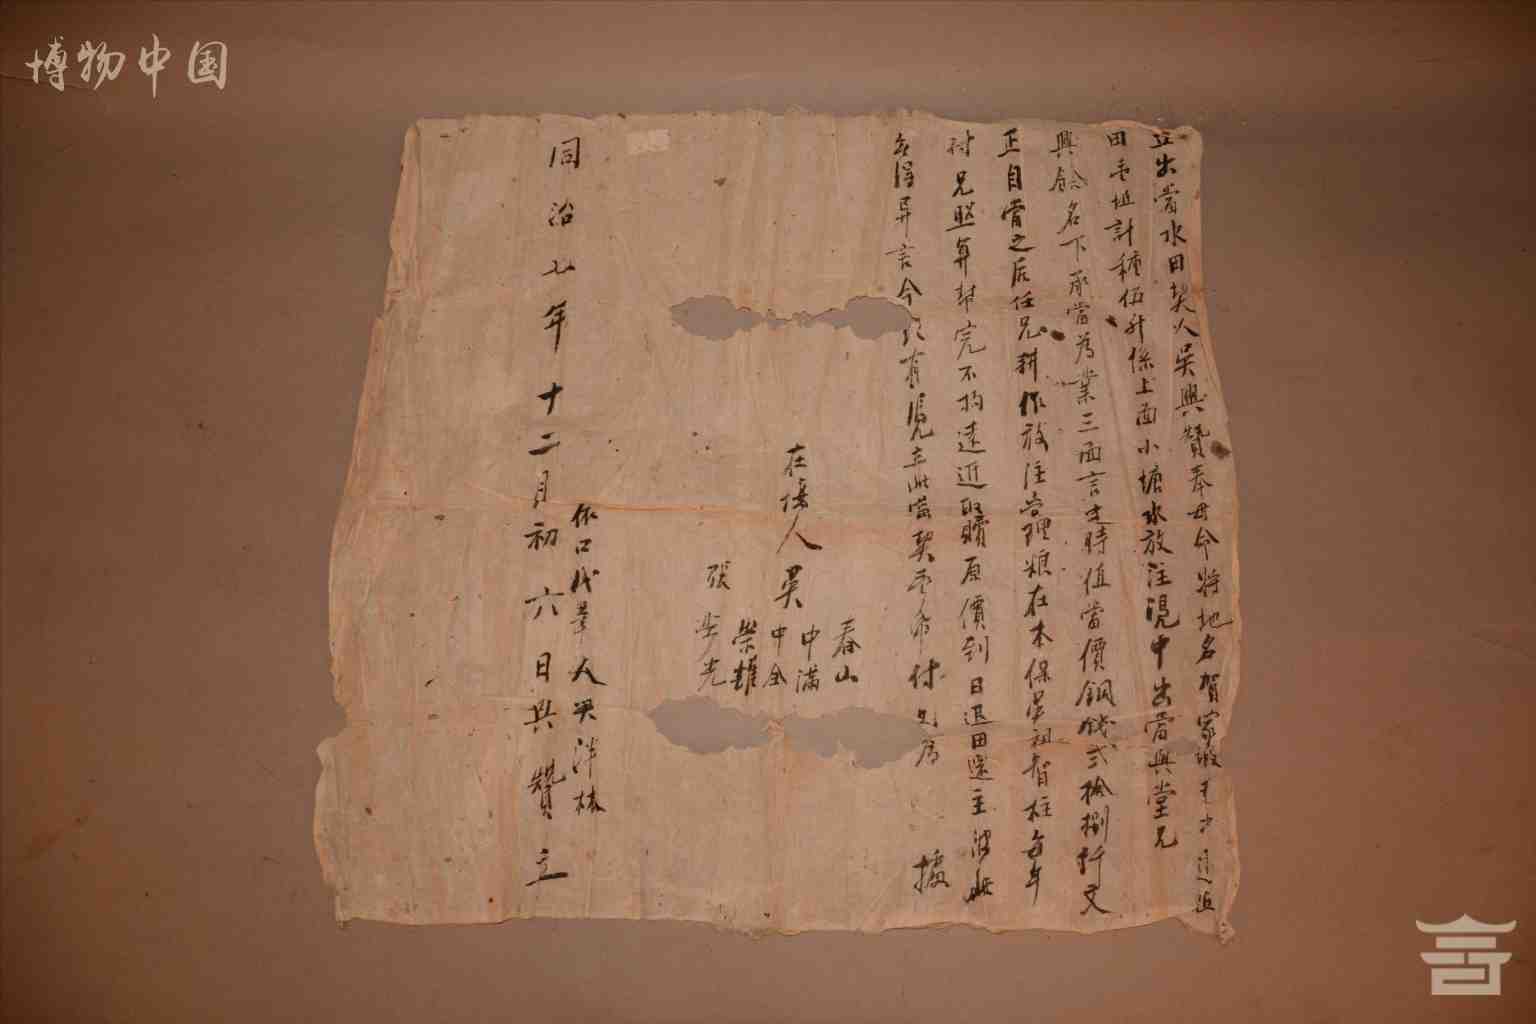 博物中国
立出當水田契人吳興贊奉母命將地名賀家塅
田壱坵計種伍升係上面小塘水放注溉中出當與堂兄
興餘名下承當為業三面言定時值當價銅錢弍拾捌仟文
正自當之后任兄耕作放注管理粮在本保吳祖智柱每年
討兄照算幫完不拘遠近取贖原價到日退田還主彼此
無得異言今有憑立此當契壱𥿄付兄為據
在場人 吳 春山 中滿 中全 榮雄
張學光
依口代筆人吳洋林
同治七年十二月初六日興贊立